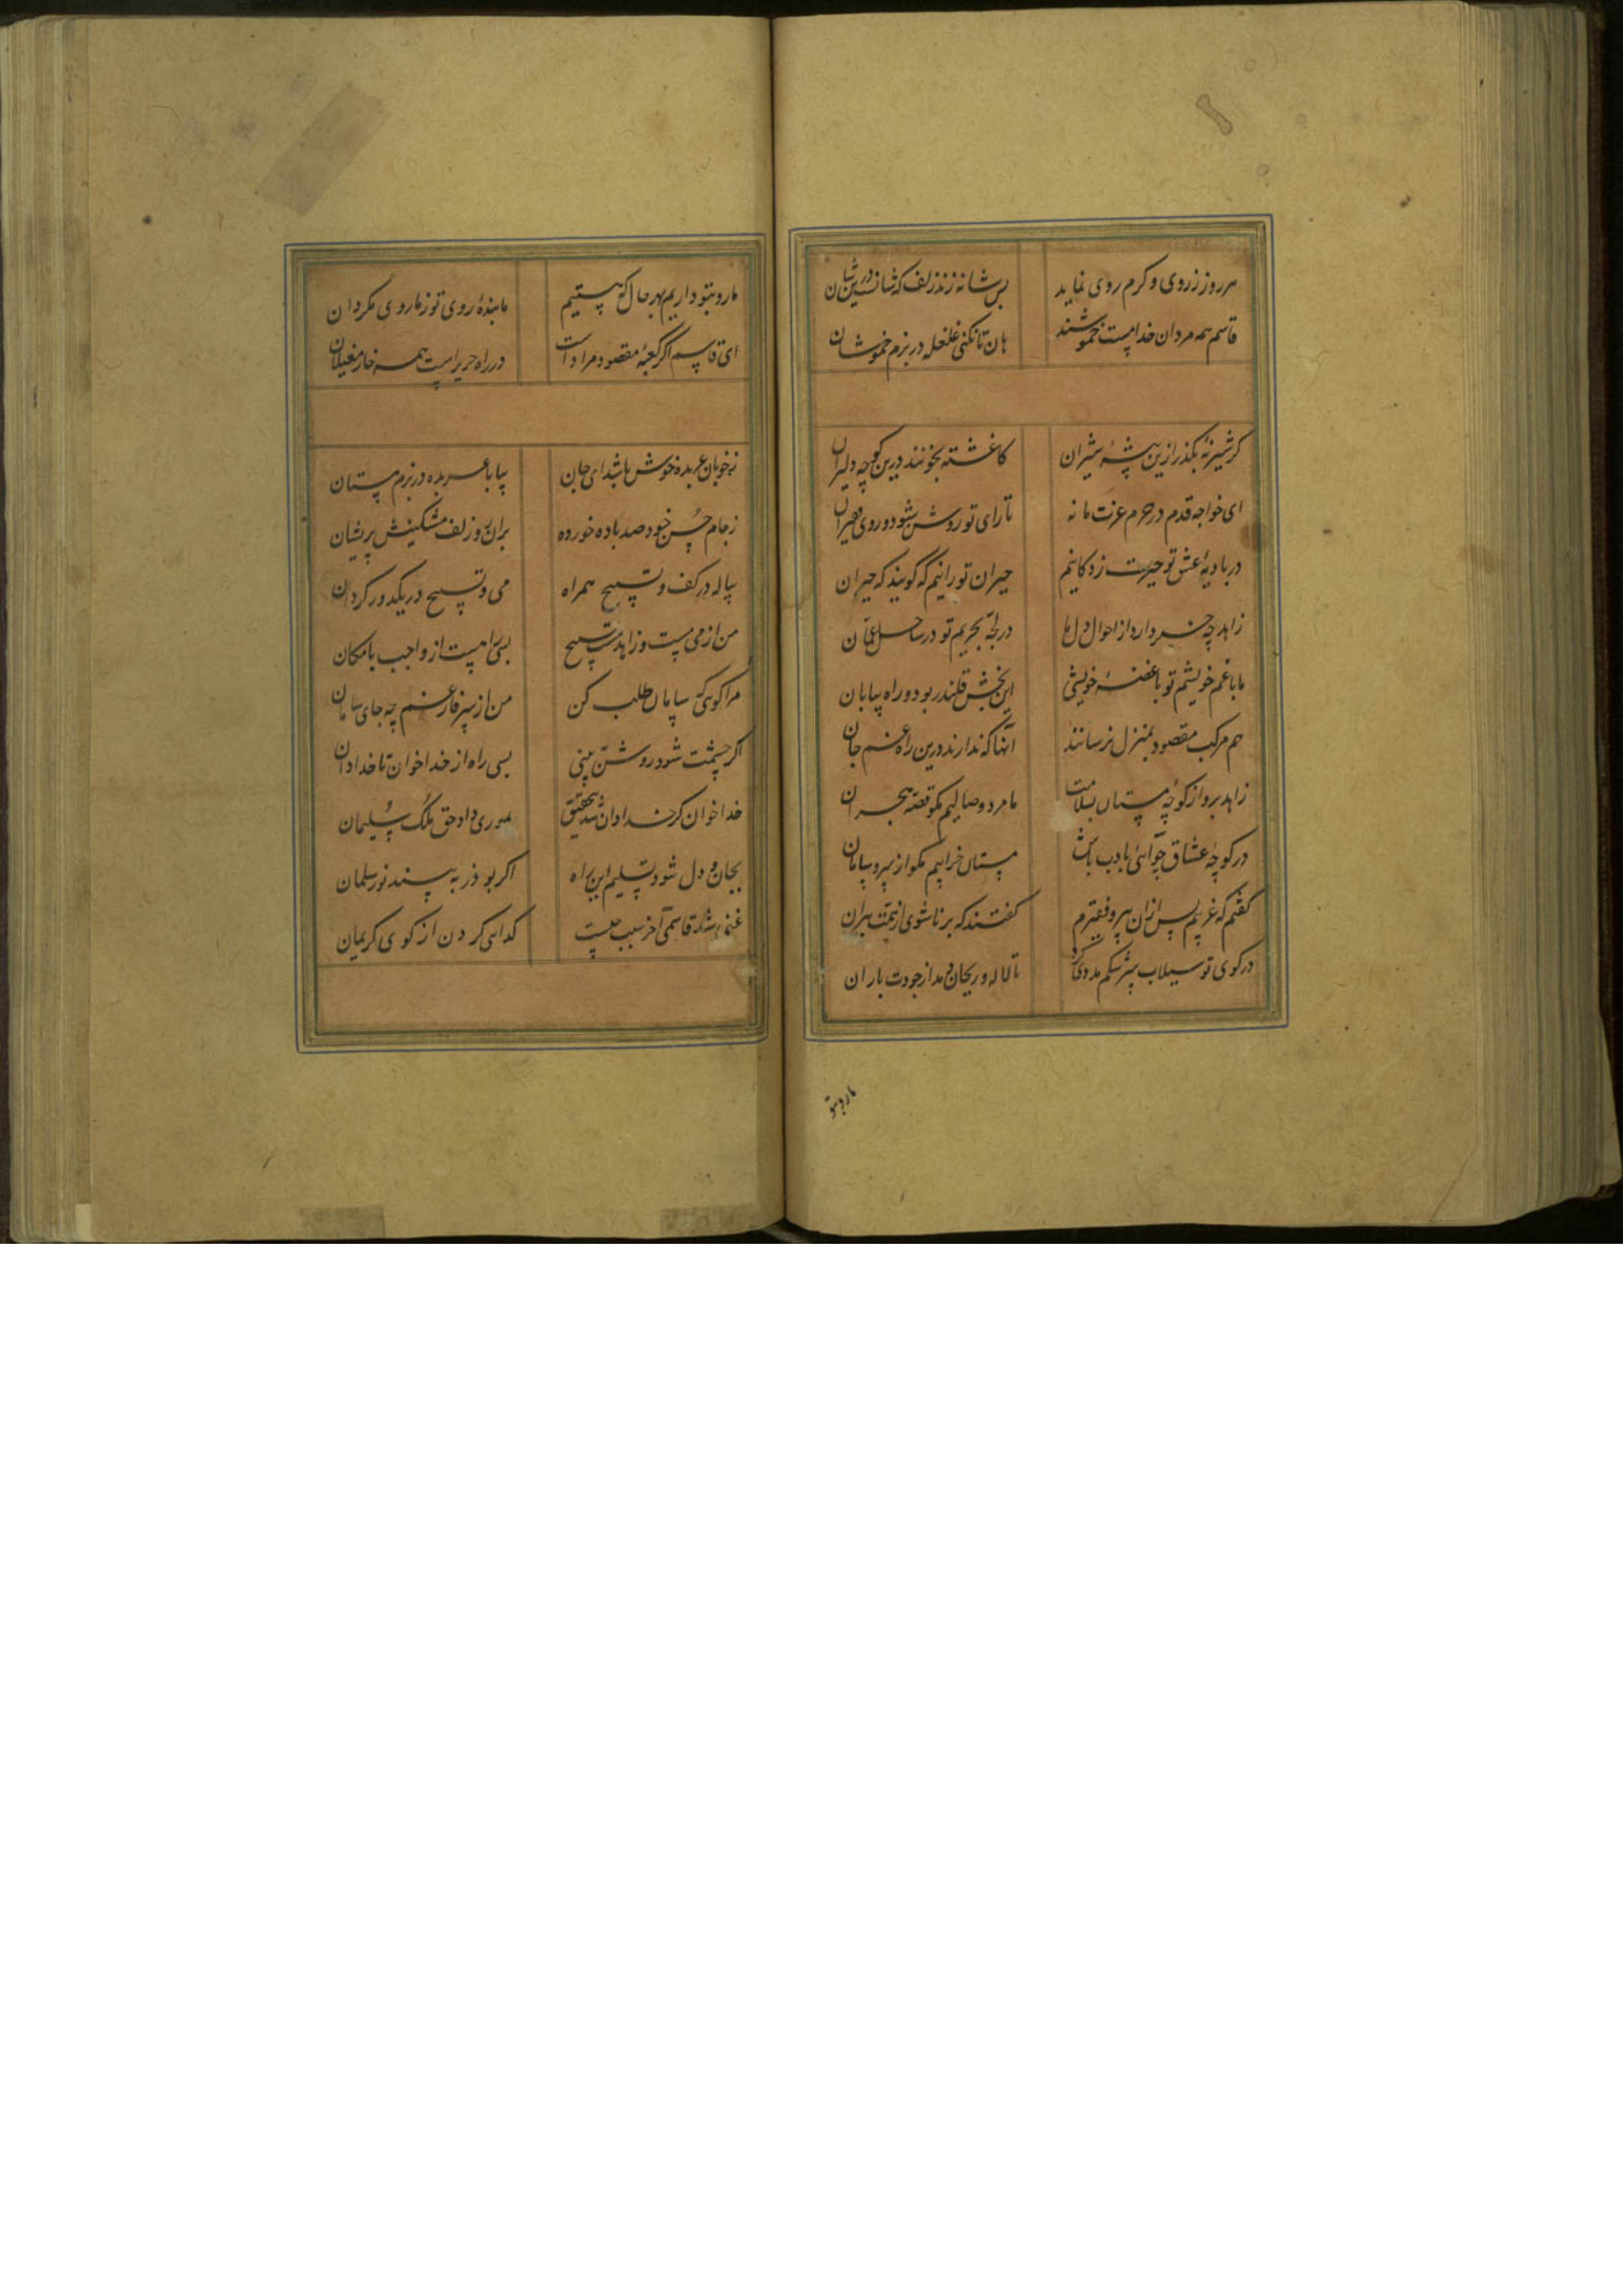 هر روز ز روی و کرم روی نماید بس شانه زند زلف که شانست درین شان
قاسم همه مردان خدا مست خموشند هان تا نکنی غلغله در بزم خموشان
گر شیر نه بگذر ازین بیشه شیران کاغشته بخونند درین کوچه دلیران
ای خواجه قدم در حرم عزت ما نه تا رای تو روشن شود و روی فقیران
در بادیه عشق تو حیرت زدگانیم حیران تو رانیم که گویند که حیران
زاهد چه خبر دارد از احوال دل ما در لجه بحریم تو در ساحل عمان
ما با غم خویشیم تو با غصه خویشی این بخش قلندر بود و راه بیابان
هم مرکب مقصود بمنزل نرسانند آنها که ندارند درین راه غم جان
زاهد برو از کوچه مستان بسلامت ما مرد وصالیم مگو قصه هجران
در کوچه عشاق چو آئی بادب باش مستان خرابیم مگو از سر و سامان
گفتم که غریبم پس ازان پیر و فقیرم گفتند که برنا شوی از همت پیران
در کوی تو سیلاب سرشکم مددی کرد تا لاله و ریحان دمد از جودت باران
ما رو بتو
ما رو بتو داریم بهر حال که هستیم ما بنده روی تو ز ما روی مگردان
ای قاسم اگر کعبه مقصود مراد است در راه حریر است همه خار مغیلان
ز خوبان عربده خوش باشد ای جان بیا با عربده در بزم مستان
ز جام حسن خود صد باده خورده بران رو زلف مشکینش پریشان
پیاله در کف و تسبیح همراه می و تسبیح در یکدور گردان
من از می مست و زاهد مست تسبیح بسی راهست از واجب بامکان
مرا گوئی که سامان طلب کن من از سر فارغم چه جای سامان
اگر چشمت شود روشن ببینی بسی راه از خدا خوان تا خدا دان
خدا خوان گر خدا دان شد بتحقیق بموری داد حق ملک سلیمان
بجان و دل شود تسلیم این راه اگر بوذر به بیند نور سلمان
قاسمی آخر سبب چیست گدایی کردن از کوی کریمان